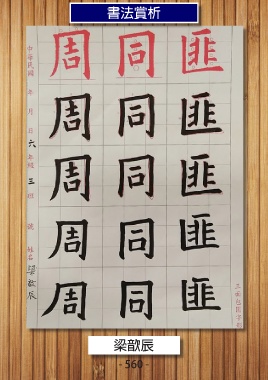 書法賞析
匪同周
匪同周
匪同周
匪同周
匪同周
中華民國 年 月 日 六年級 三班 號 姓名 梁歆辰
梁歆辰
- 560 -